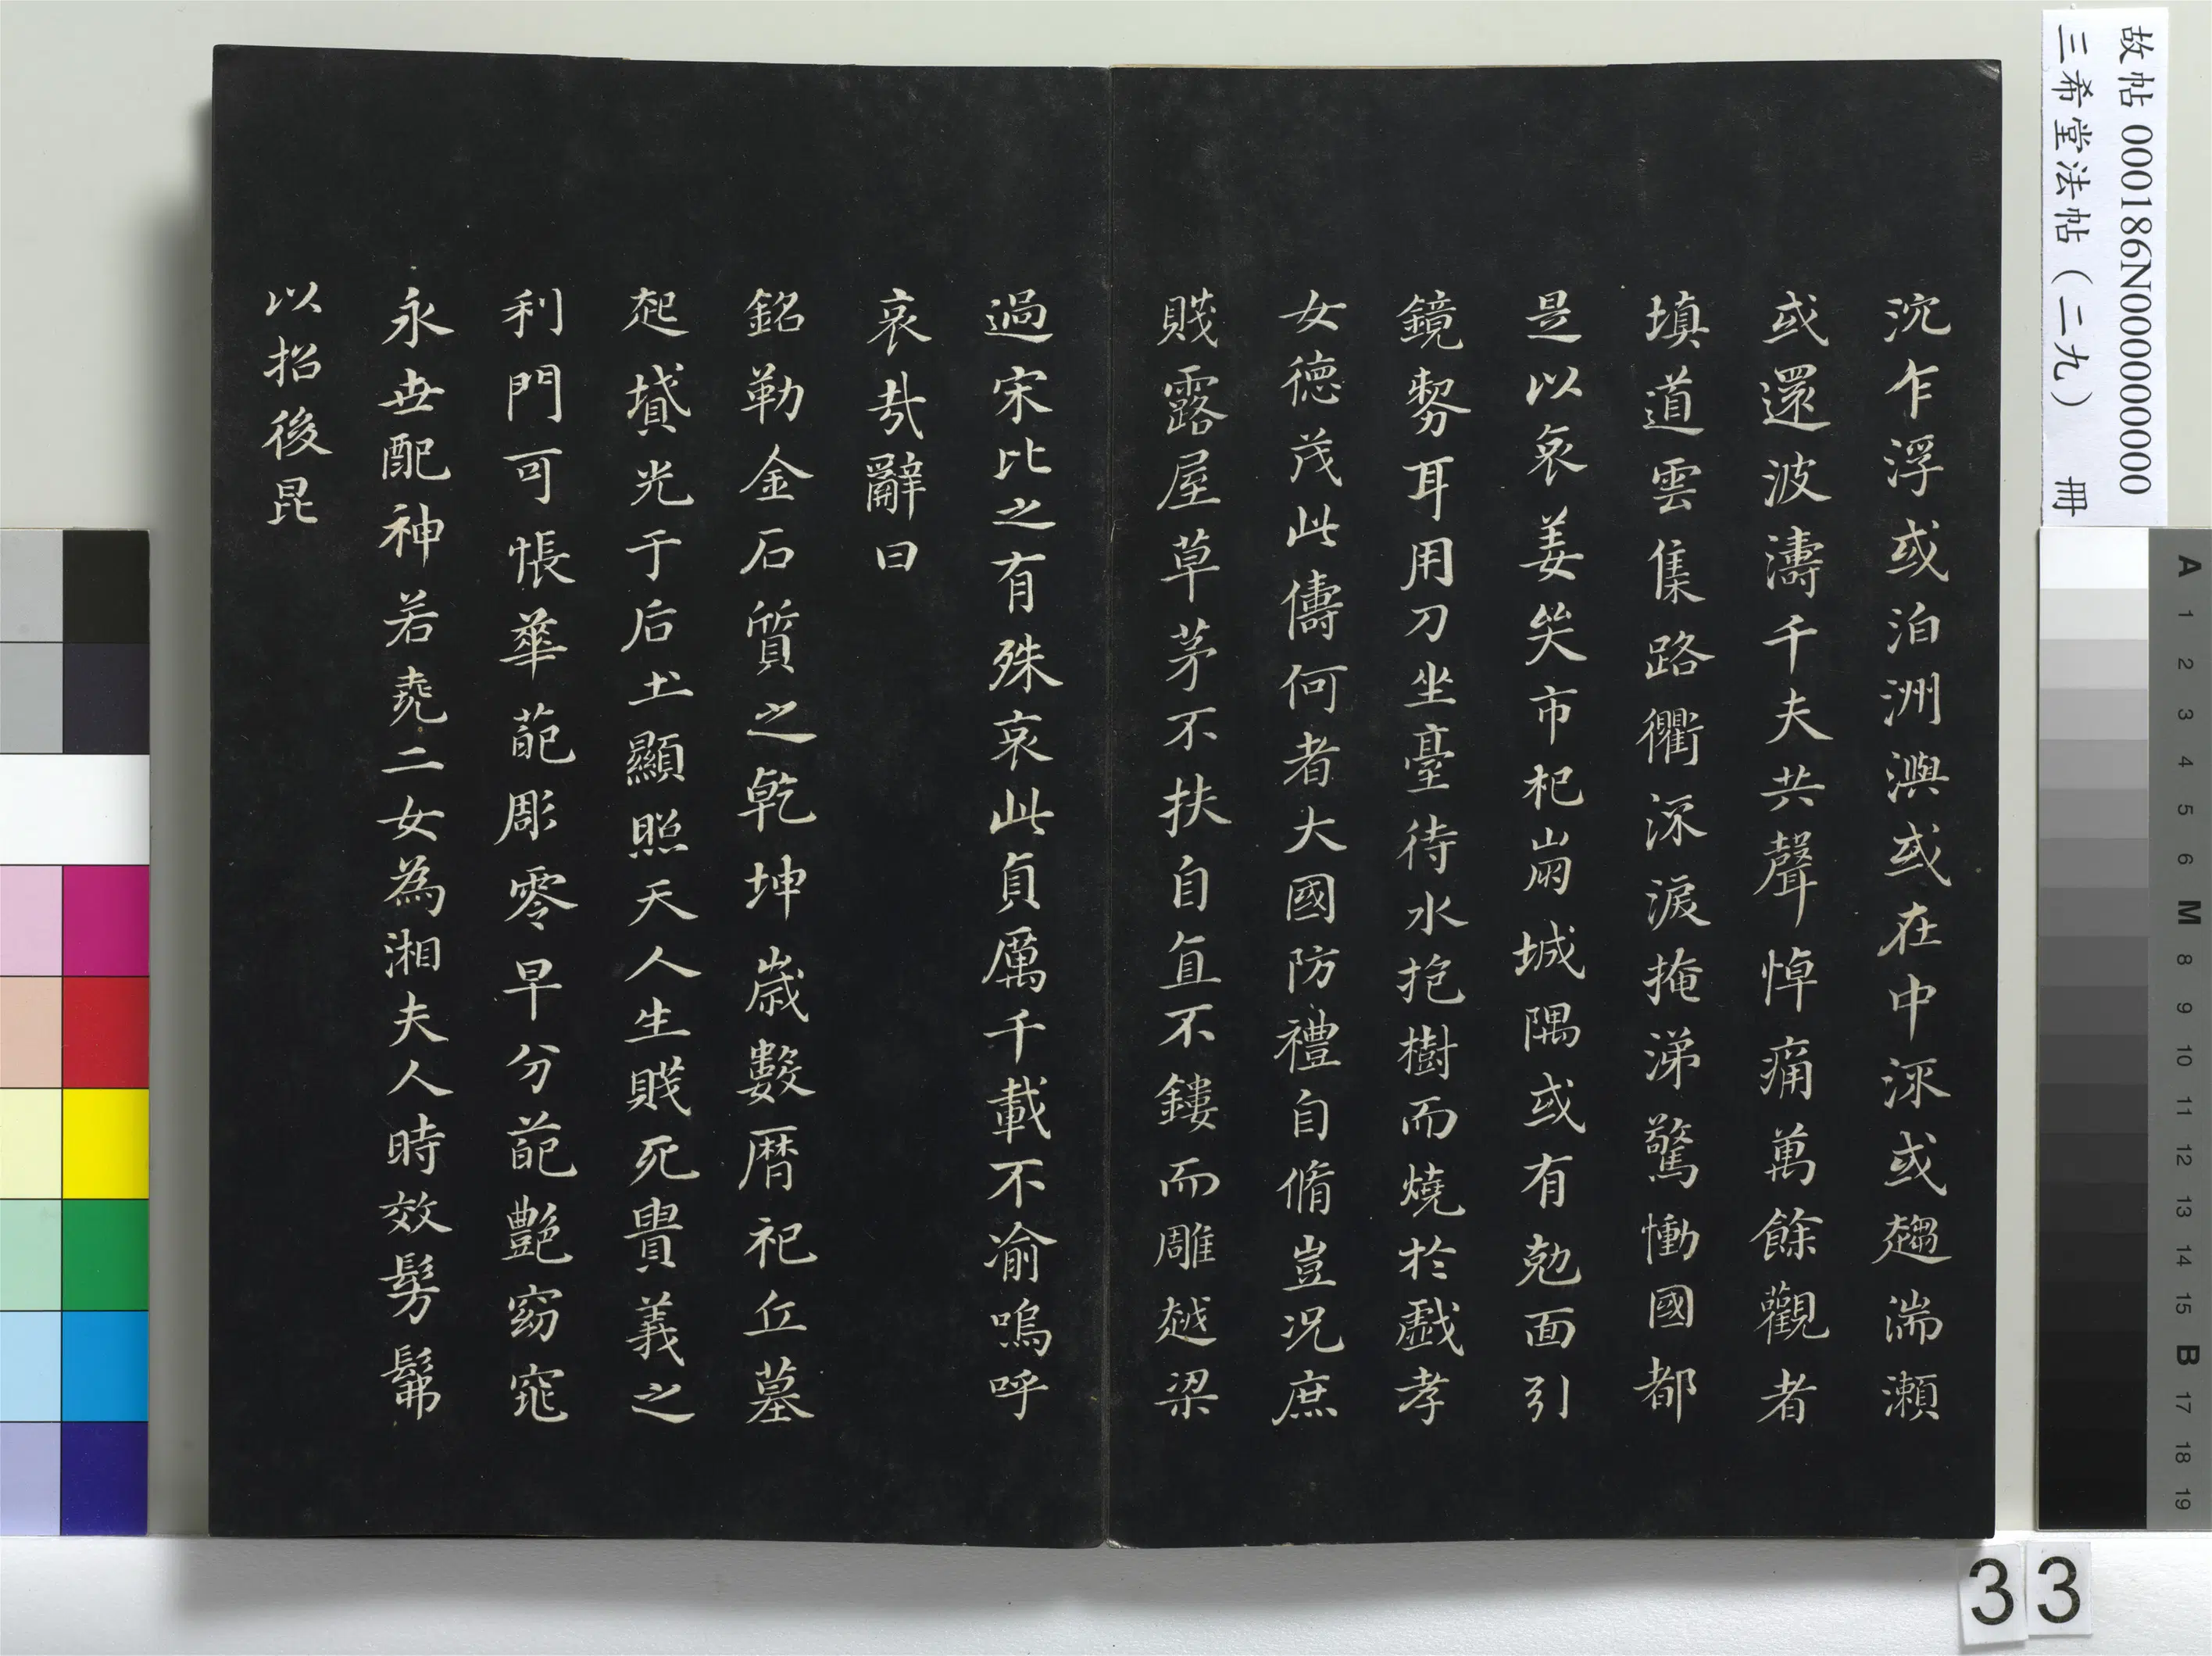 沉乍浮或泊洲澳或在中流或趨湍瀨
或還波濤千夫共聲悼痛萬餘觀者
填道雲集路衢深淚掩涕驚慟國都
是以哀姜哭市杞崩城隅或有剋面引
鏡剺耳用刀坐臺待水抱樹而燒於戲孝
女德茂此儔何者大國防禮自脩豈況庶
賤露屋草茅不扶自直不鏤而雕越梁
過宋比之有殊哀此貞厲千載不渝嗚呼
哀哉辭曰
銘勒金石質之乾坤歲數曆祀丘墓
起墳光于后土顯照天人生賤死貴義之
利門可悵華葩彫零早分葩艷窈窕
永世配神若堯二女為湘夫人時效髣髴
以招後昆
故帖 000186N000000000
三希堂法帖（二九） 冊
A 1 2 3 4 5 6 M 8 9 10 11 12 13 14 15 B 17 18 19
33